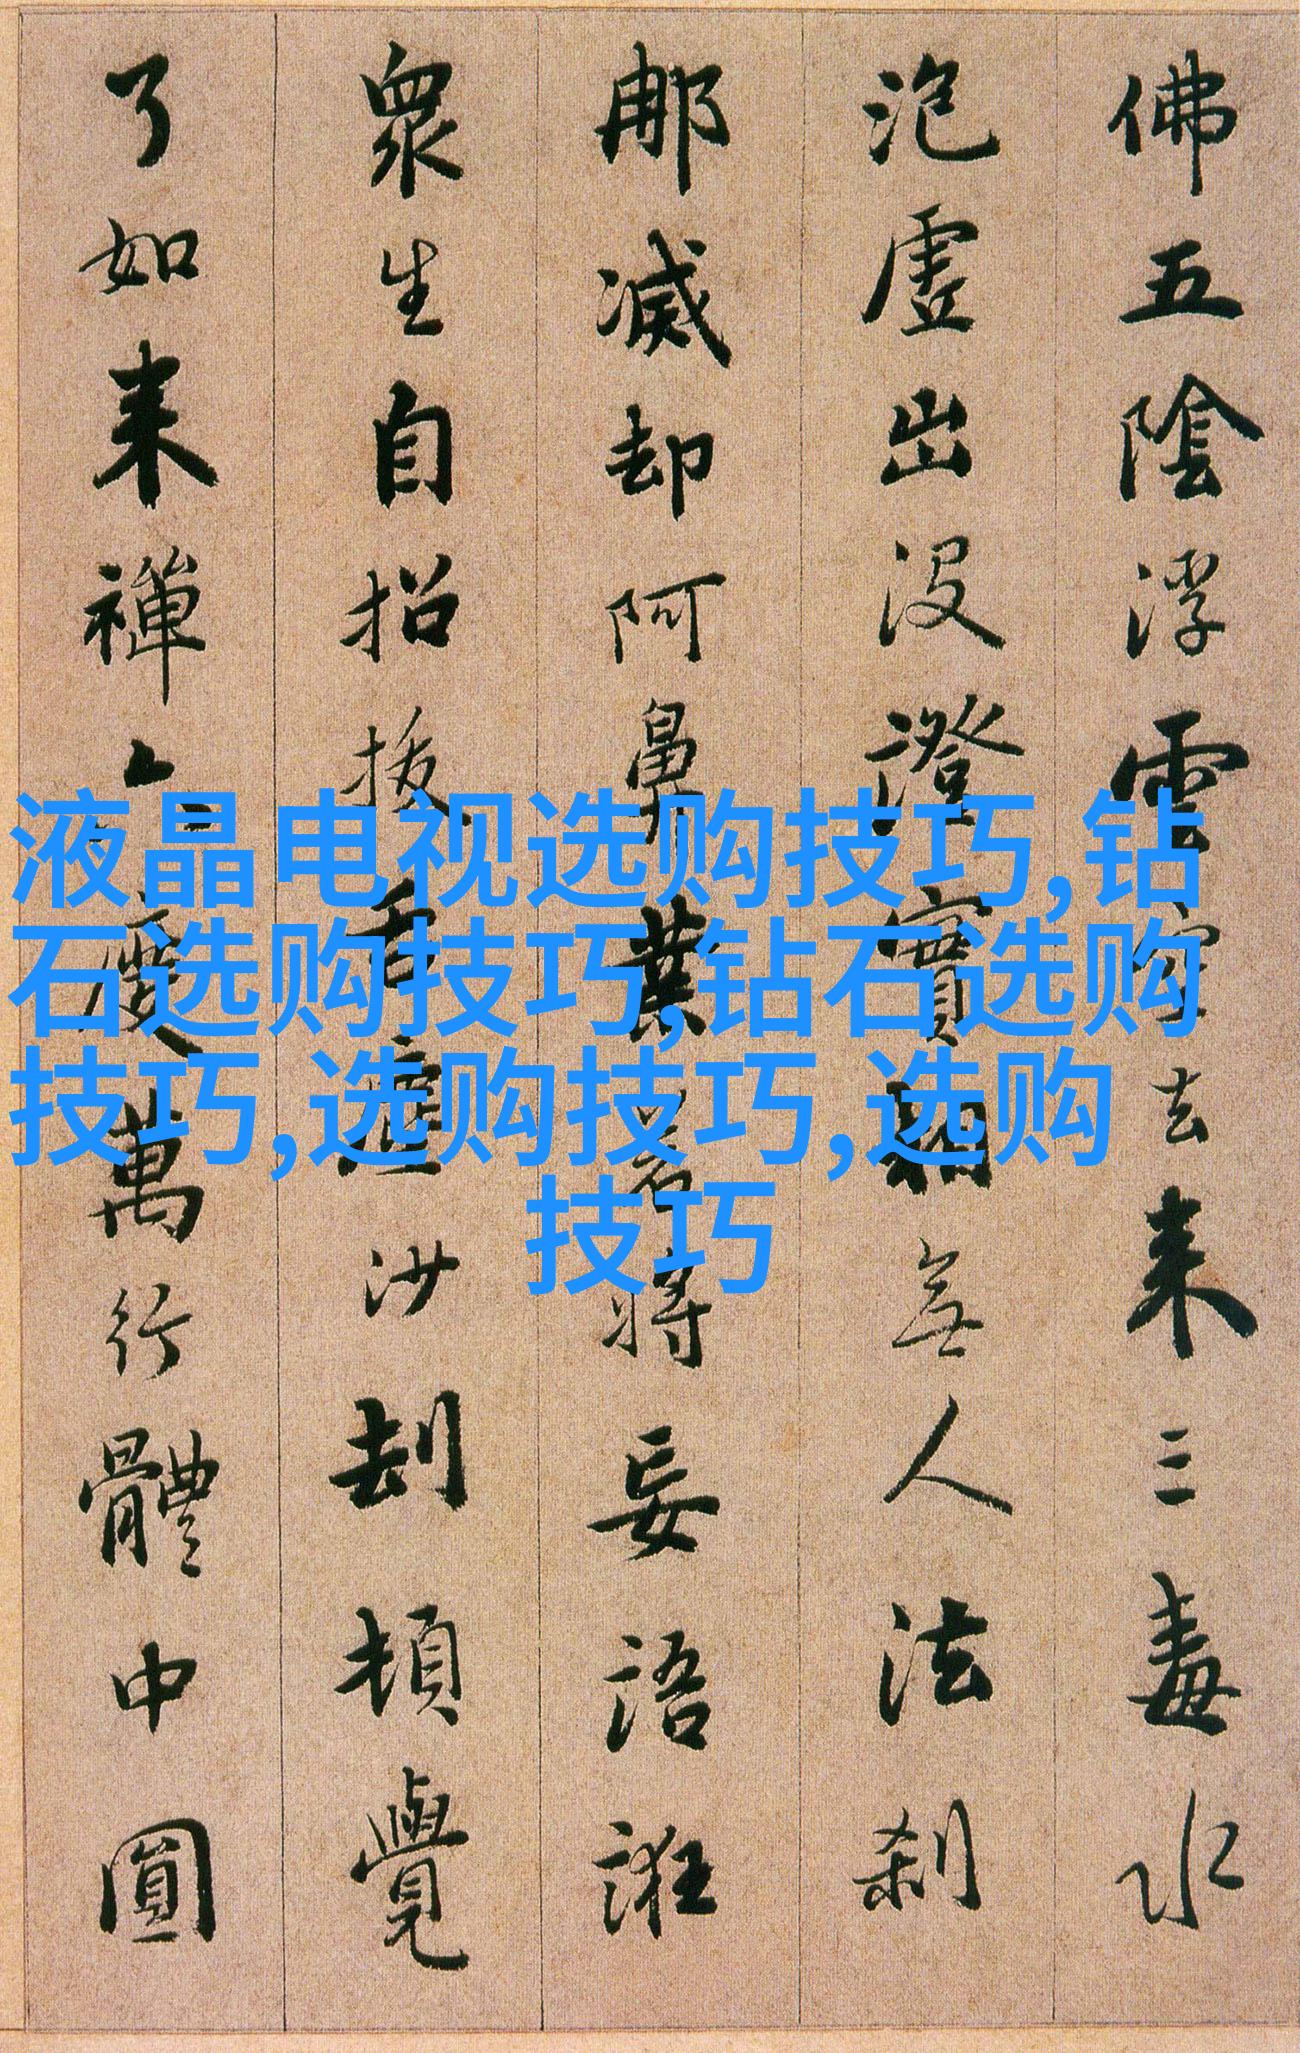 佛五陰浮雲空去来三毒水
泡虚出没證實相無人法刹
那滅却阿鼻業若將妄語誑
衆生自招拔舌塵沙劫頓覺
了如来禪六度萬行體中圓
液晶电视选购技巧,钻
石选购技巧,钻石选购
技巧,选购技巧,选购
技巧